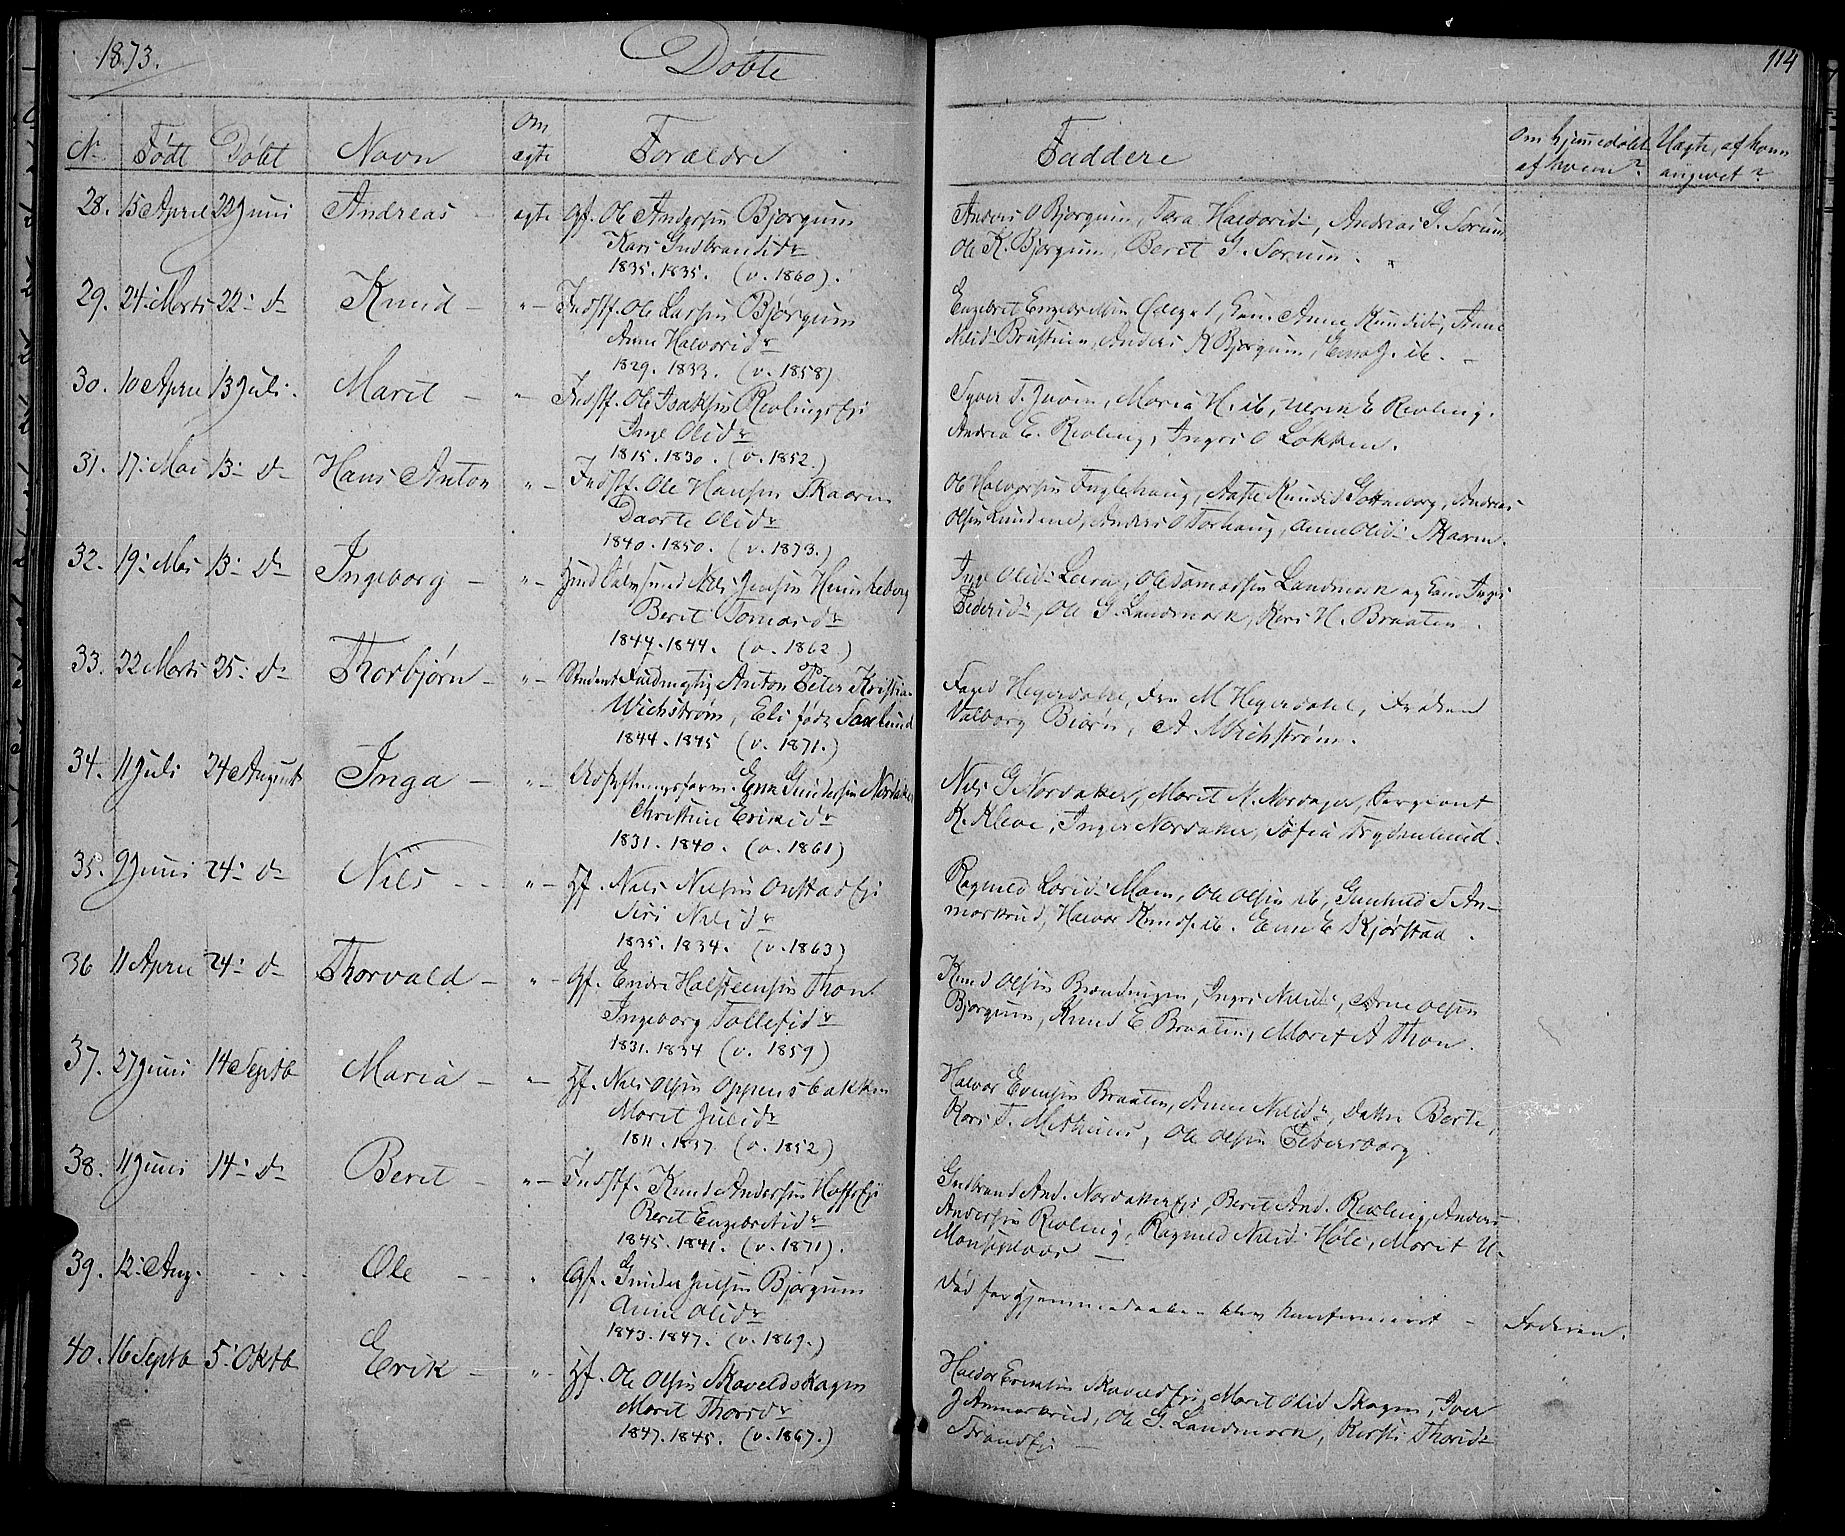 1873.
Døbte
114
No Født Døbt Navn Om ægte Forældre Faddere Om hjemedøbt af hvem? Uægte, af hvem angivet?
28. 15 April 22 Juni Andreas - ægte Gf. Ole Andersen Bjørgum
Kari Gudbrandsdr
1835. 1835. (v. 1860).
Anders O Bjørgum, Tora Halvorsd-, Andreas G. Sørum
Ole K. Bjørgum, Berit G. Sørum.
29. 24 Marts 22 - d- Knud - "- Indstf. Ole Larsen Bjørgum
Anne Halvorsdr
1829. 1833. (v. 1858)
Engebret Engebretsen, Anne Knudsd-, Anne
Nilsd- Brustuen, Anders K Bjørgum, ib. -
30. 10 April 13 Juli. Marit - "- Indstf. Ole Isaksen Revlingseje
Inge Olsdr
1815. 1830. (v. 1852.)
Syver T. Juven, Maria H. ib, E Revling.
Andrea E. Revling, Ingri O Løkken.
31. 17. Mai 13 - d- Hans Anton "- Indstf. Ole Hansen Skaaren
Daarte Olsdr
1840. 1850. (v. 1873.)
Ole Halvorsen Fuglehaug, Aase Knudsd Gottenborg, Andreas
Olsen Lundene, Anders O Torhaug, Anne Olsd- Skaaren.
32. 19 - Mai 13 - d- Ingeborg - "- Nils Jensen Hunkeborg
Berit Tomasdr
1844. 1844. (v. 1862)
Inge Olsd- Lera, Ole Tomassen Landmark og Kone Ingri
Pedersdr, Ole G. Landmark, Kari H. Braaten.
33. 22 Marts 25 - d- Thorbjørn - "- Student Fuldmægtig Anton Peter Kristian
Wichstrøm, Eli født Saxlund
1844. 1845 (v. 1871.)
Foged Hegerdahl, Fru M Hegerdahl, Frøken
Valborg Bjørn, A. Wichstrøm.
34. 11 Juli 24 August Inga - "- Udskiftningsform. Even Gundersen Nordaker
Christine Eriksdr
1831. 1840. (v. 1861)
Nils G Nordaker, Marit N. Nordaker, Sergeant
K. Kleve, Inger Nordaker, Sofia Frydenlund.
35. 9 Juni 24 - d- Nils - - "- Hf. Nils Nilsen Onstadeje
Siri Nilsdr
1835. 1834. (v. 1863)
Ragnild Larsd- Moen, Ole Olsen ib, Gunhild S An-
merkrud, Halvor Knuds. ib. Even E Kjørstad.
36 11 April 24 - d- Thorvald - "- Gf. Endre Halsteensen Thon
Ingeborg Tollefsdr
1831. 1834 (v. 1859)
Knud Olsen Brendingen, Ingri Nilsd-, Arne Olsen
Bjørgum, Knud E Braaten, Marit A Thon.
37. 27 Juni 14 Septb Maria - "- Hf. Nils Olsen Oppensbakken
Marit Julsdr
1811. 1837. (v. 1852)
Halvor Evensen Braaten, Anne Nilsdr, Datter Berte,
Kari T. Methiuus, Ole Olsen Petersborg.
38. 11 Juni 14 - d- Berit - "- Indstf. Knud Andersen Hoffseje
Berit Engebretsdr
1845. 1841. (v. 1871).
Gudbrand And. Nordakereje, Berit And. Revling, Anders
Andersen Revling, Ragnild Nilsd- Høle, Marit U-
39. 12 - Aug. - - Ole - - " Gf. Gunder Julsen Bjørgum
Anne Olsdr
1843. 1847. (v. 1869.)
Død før Hjemmedaaben blev konfirmeret - Faderen.
40. 16 Septb 5. Oktb Erik - "- Hf. Ole Olsen Skaveldskagen
Marit Thorsdr
1847. 1845. (v. 1867.)
Halvor Evensen Skaveldeje, Marit Olsd Skagen, Iver
J Anmerkrud, Ole G. Landmark, Kirsti Thorsd-
Strandeje -